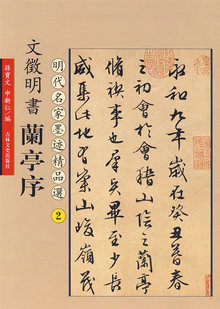 永和九年歲在癸丑暮春
之初會於會稽山陰之蘭亭
脩禊事也羣賢畢至少長
咸集此地有崇山峻嶺茂
明代名家墨迹精品選 2
文徵明書 蘭亭序
孫寶文 申新仁/編
吉林文史出版社